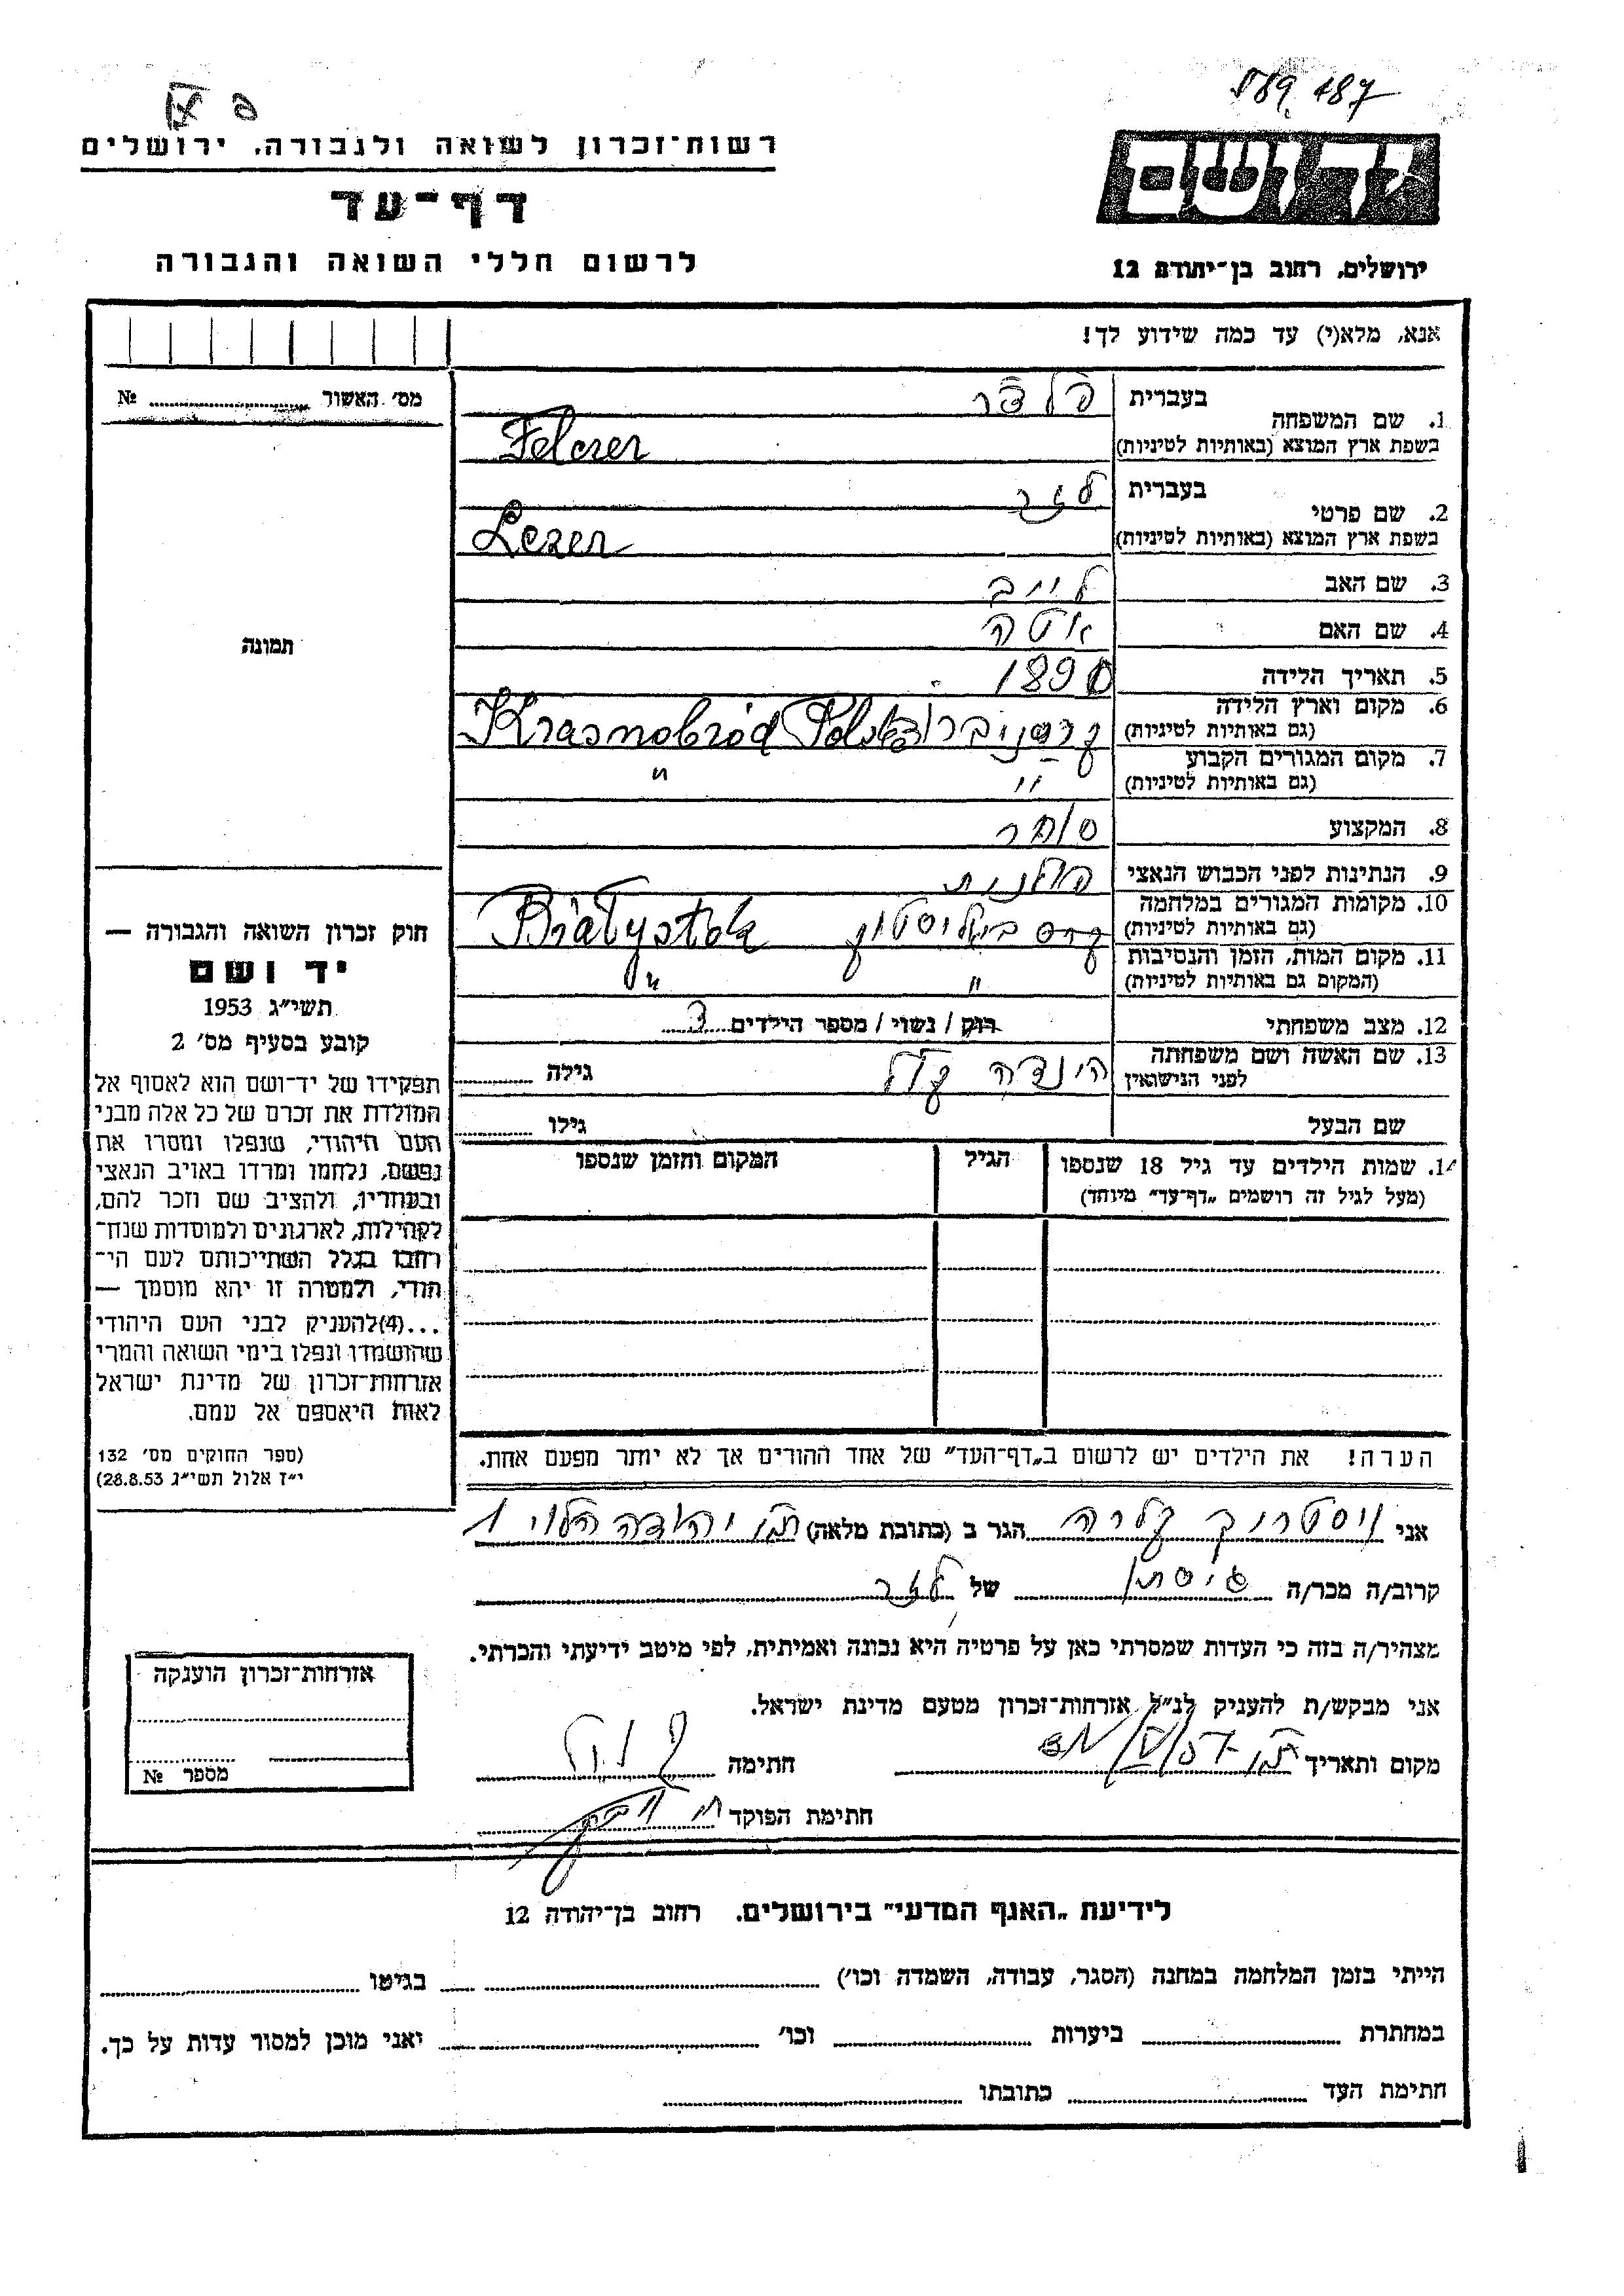 589 187
רשות־זכרון לשואה ולגבורה, ירושלים
דף־עד
לרשום חללי השואה והגבורה
יד ושם
ירושלים, רחוב בן־יהודה 12
אנא, מלא(י) עד כמה שידוע לך!
מס׳ האשור № 
1. שם המשפחה בעברית פלצר
בשפת ארץ המוצא (באותיות לטיניות) Felczer
2. שם פרטי בעברית לזר
בשפת ארץ המוצא (באותיות לטיניות) Lezer
3. שם האב לייב
4. שם האם איטה
תמונה
5. תאריך הלידה 1890
6. מקום וארץ הלידה (גם באותיות לטיניות) Krasnobród Polska
7. מקום המגורים הקבוע (גם באותיות לטיניות) " "
8. המקצוע סוחר
9. הנתינות לפני הכבוש הנאצי פולנית
10. מקומות המגורים במלחמה (גם באותיות לטיניות) ביאליסטוק Białystok
11. מקום המות, הזמן והנסיבות (המקום גם באותיות לטיניות) " "
12. מצב משפחתי רווק / נשוי / מספר הילדים 3
13. שם האשה ושם משפחתה לפני הנישואין הינדה גילה
שם הבעל גילו
14. שמות הילדים עד גיל 18 שנספו הגיל המקום והזמן שנספו
(מעל לגיל זה רושמים „דף־עד״ מיוחד)
חוק זכרון השואה והגבורה —
יד ושם
תשי״ג 1953
קובע בסעיף מס׳ 2
תפקידו של יד־ושם הוא לאסוף אל
המולדת את זכרם של כל אלה מבני
העם היהודי, שנפלו ומסרו את
נפשם, נלחמו ומרדו באויב הנאצי
ובעוזריו, ולהציב שם וזכר להם,
לקהילות, לארגונים ולמוסדות שנח־
רבו בגלל השתייכותם לעם הי־
הודי, ולמטרה זו יהא מוסמך —
...(4)להעניק לבני העם היהודי
שהושמדו ונפלו בימי השואה והמרי
אזרחות־זכרון של מדינת ישראל
לאות היאספם אל עמם.
(ספר החוקים מס׳ 132
י״ז אלול תשי״ג 28.8.53)
הערה! את הילדים יש לרשום ב„דף־העד״ של אחד ההורים אך לא יותר מפעם אחת.
אני ויסטריק קלרה הגר ב (כתובת מלאה) יהודה הלוי 1
קרוב/ה מכר/ה גיסתו של לזר
מצהיר/ה בזה כי העדות שמסרתי כאן על פרטיה היא נכונה ואמיתית, לפי מיטב ידיעתי והכרתי.
אני מבקש/ת להעניק לנ״ל אזרחות־זכרון מטעם מדינת ישראל.
מקום ותאריך חתימה
חתימת הפוקד
אזרחות־זכרון הוענקה
מספר №
לידיעת „האגף המדעי״ בירושלים. רחוב בן־יהודה 12
הייתי בזמן המלחמה במחנה (הסגר, עבודה, השמדה וכו׳) בגיטו
במחתרת ביערות וכו׳ ואני מוכן למסור עדות על כך.
חתימת העד כתובתו